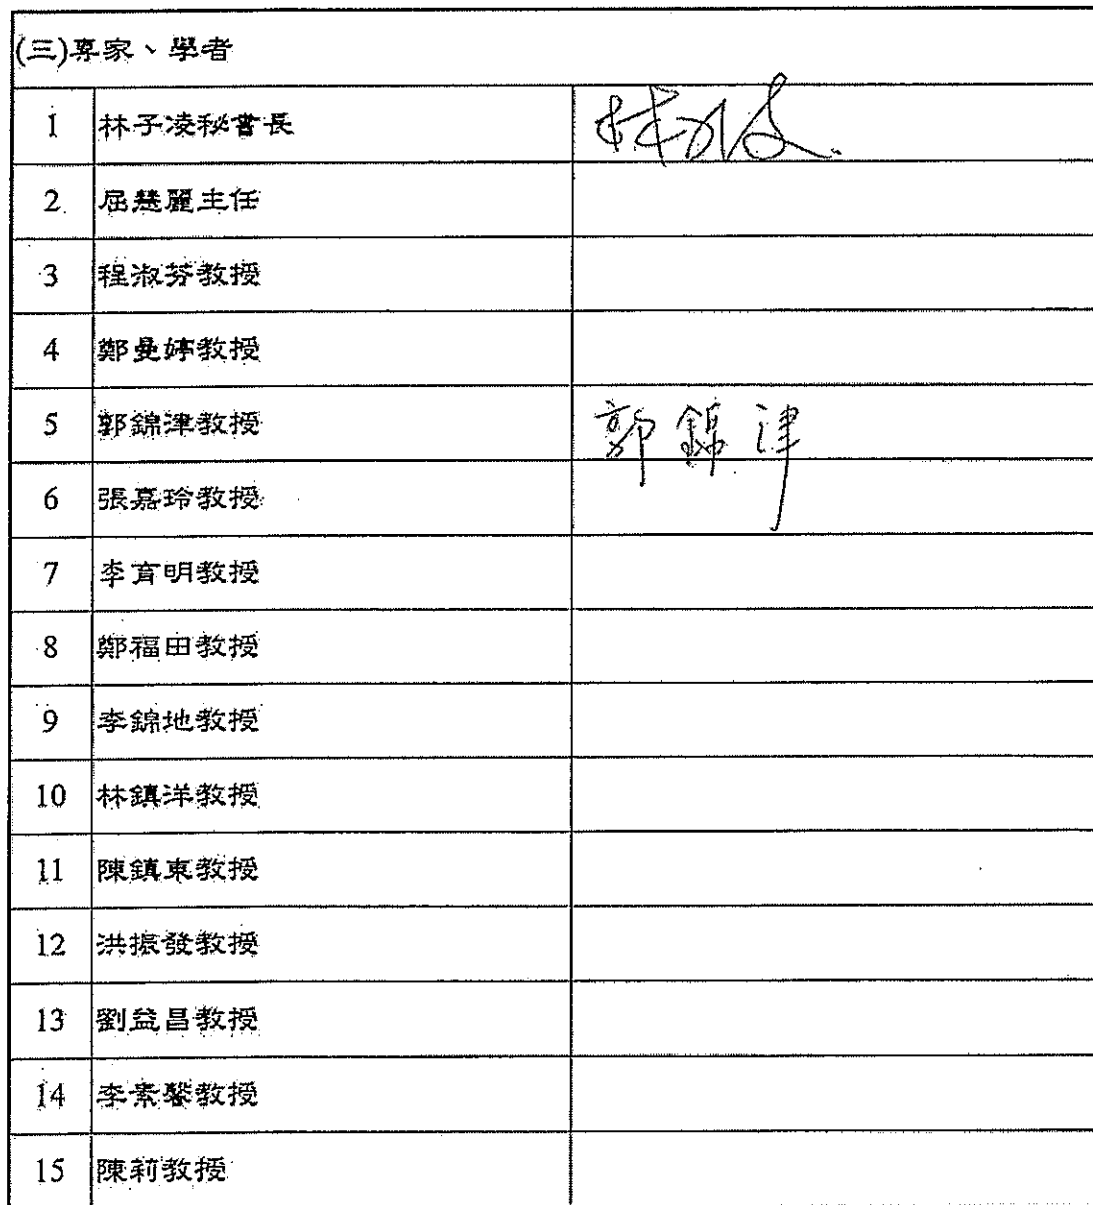 (三)專家、學者
1 林子凌秘書長 林子凌
2 屈慧麗主任
3 程淑芬教授
4 鄭曼婷教授
5 郭錦津教授 郭錦津
6 張嘉玲教授
7 李育明教授
8 鄭福田教授
9 李錦地教授
10 林鎮洋教授
11 陳鎮東教授
12 洪振發教授
13 劉益昌教授
14 李素馨教授
15 陳莉教授